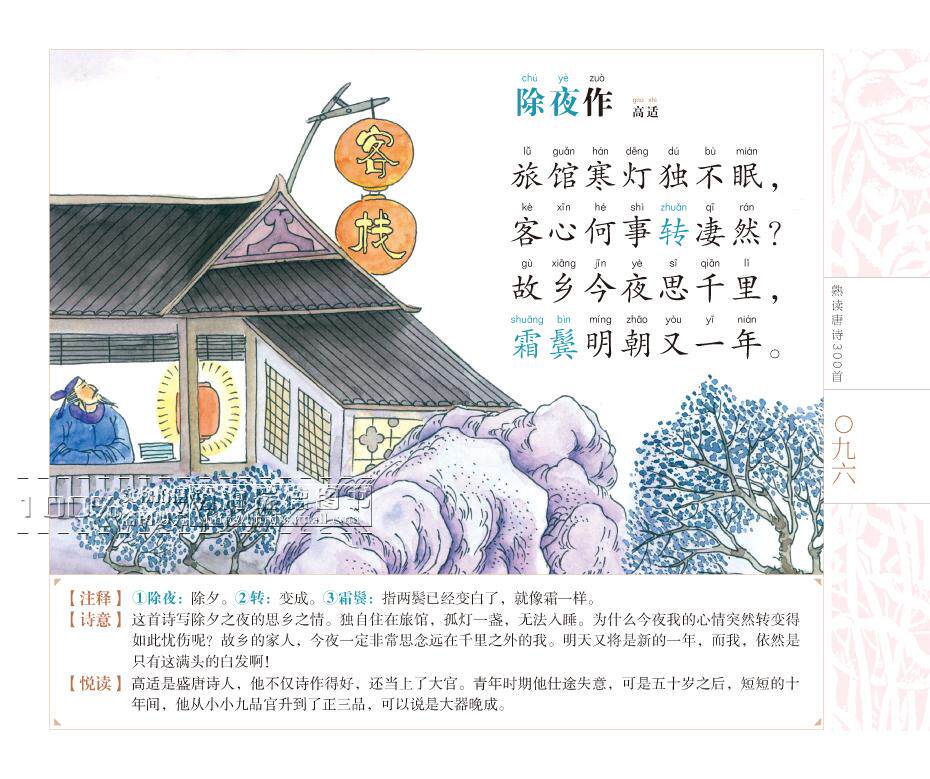 chú yè zuò
除夜作
gāo shì
高适
lǚ guǎn hán dēng dú bù mián
旅馆寒灯独不眠，
kè xīn hé shì zhuǎn qī rán
客心何事转凄然？
gù xiāng jīn yè sī qiān lǐ
故乡今夜思千里，
shuāng bìn míng zhāo yòu yī nián
霜鬓明朝又一年。
客栈
熟读唐诗300首
〇九六
【注释】①除夜：除夕。②转：变成。③霜鬓：指两鬓已经变白了，就像霜一样。
【诗意】这首诗写除夕之夜的思乡之情。独自住在旅馆，孤灯一盏，无法入睡。为什么今夜我的心情突然转变得
如此忧伤呢？故乡的家人，今夜一定非常思念远在千里之外的我。明天又将是新的一年，而我，依然是
只有这满头的白发啊！
【悦读】高适是盛唐诗人，他不仅诗作得好，还当上了大官。青年时期他仕途失意，可是五十岁之后，短短的十
年间，他从小小九品官升到了正三品，可以说是大器晚成。